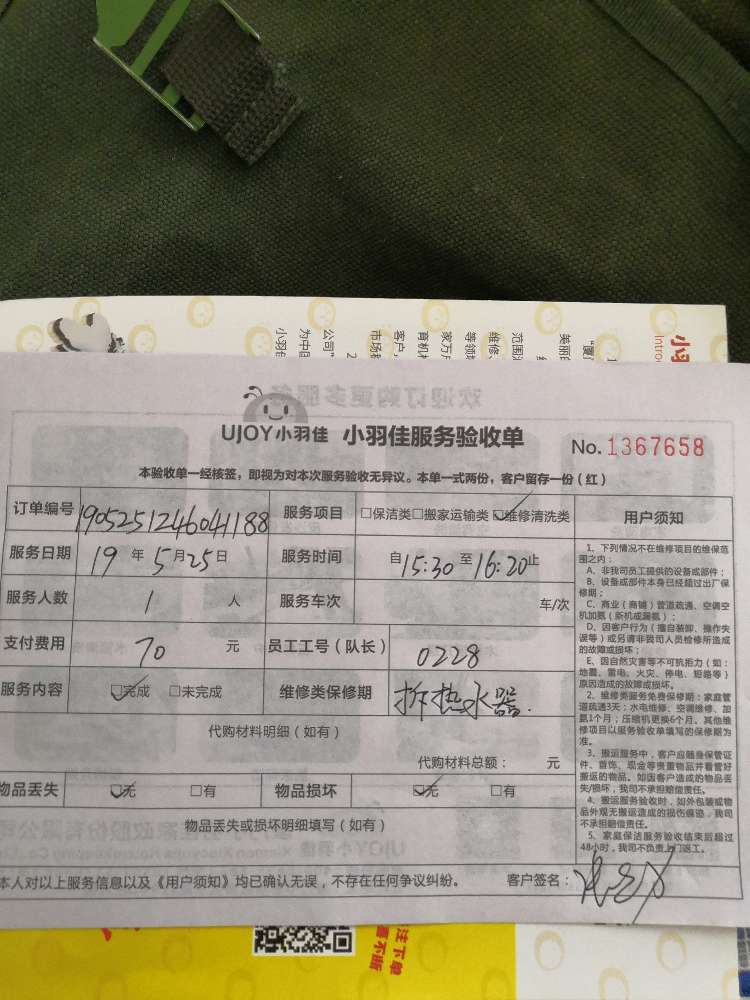 小羽
Intro
UJOY小羽佳 小羽佳服务验收单 No. 1367658
本验收单一经核签，即视为对本次服务验收无异议。本单一式两份，客户留存一份（红）
订单编号 190525124604188 服务项目 □保洁类□搬家运输类☑维修清洗类
服务日期 19 年 5 月 25 日 服务时间 自 15:30 至 16:20 止
服务人数 1 人 服务车次 车/次
支付费用 70 元 员工工号（队长） 0228
服务内容 ☑完成 □未完成 维修类保修期 拆热水器.
代购材料明细（如有）
代购材料总额： 元
物品丢失 ☑无 □有 物品损坏 ☑无 □有
物品丢失或损坏明细填写（如有）
本人对以上服务信息以及《用户须知》均已确认无误，不存在任何争议纠纷。 客户签名：
用户须知
1、下列情况不在维修项目的维保范
围之内：
A、非我司员工提供的设备或部件；
B、设备或部件本身已经超过出厂保
修期；
C、商业（商铺）管道疏通、空调空
机加氨（新机或漏氨）；
D、因客户行为（擅自装卸、操作失
误等）或另请非我司人员检修所造成
的故障或损坏；
E、因自然灾害等不可抗拒力（如：
地震、雷电、火灾、停电、短路等）
原因造成的故障或损坏。
2、维修类服务免费保修期：家庭管
道疏通3天；水电维修、空调维修、加
氨1个月；压缩机更换6个月。其他维
修项目以服务验收单填写的保修期为
准。
3、搬运服务中，客户应随身保管证
件、首饰、现金等贵重物品并看管好
搬运的物品。如因客户造成的物品丢
失/损坏，我司不承担赔偿责任。
4、搬运服务验收时，如外包装或物
品外观无搬运造成的损伤痕迹，我司
不承担赔偿责任。
5、家庭保洁服务验收结束后超过
48小时，我司不负责上门返工。
注下单
惠不断